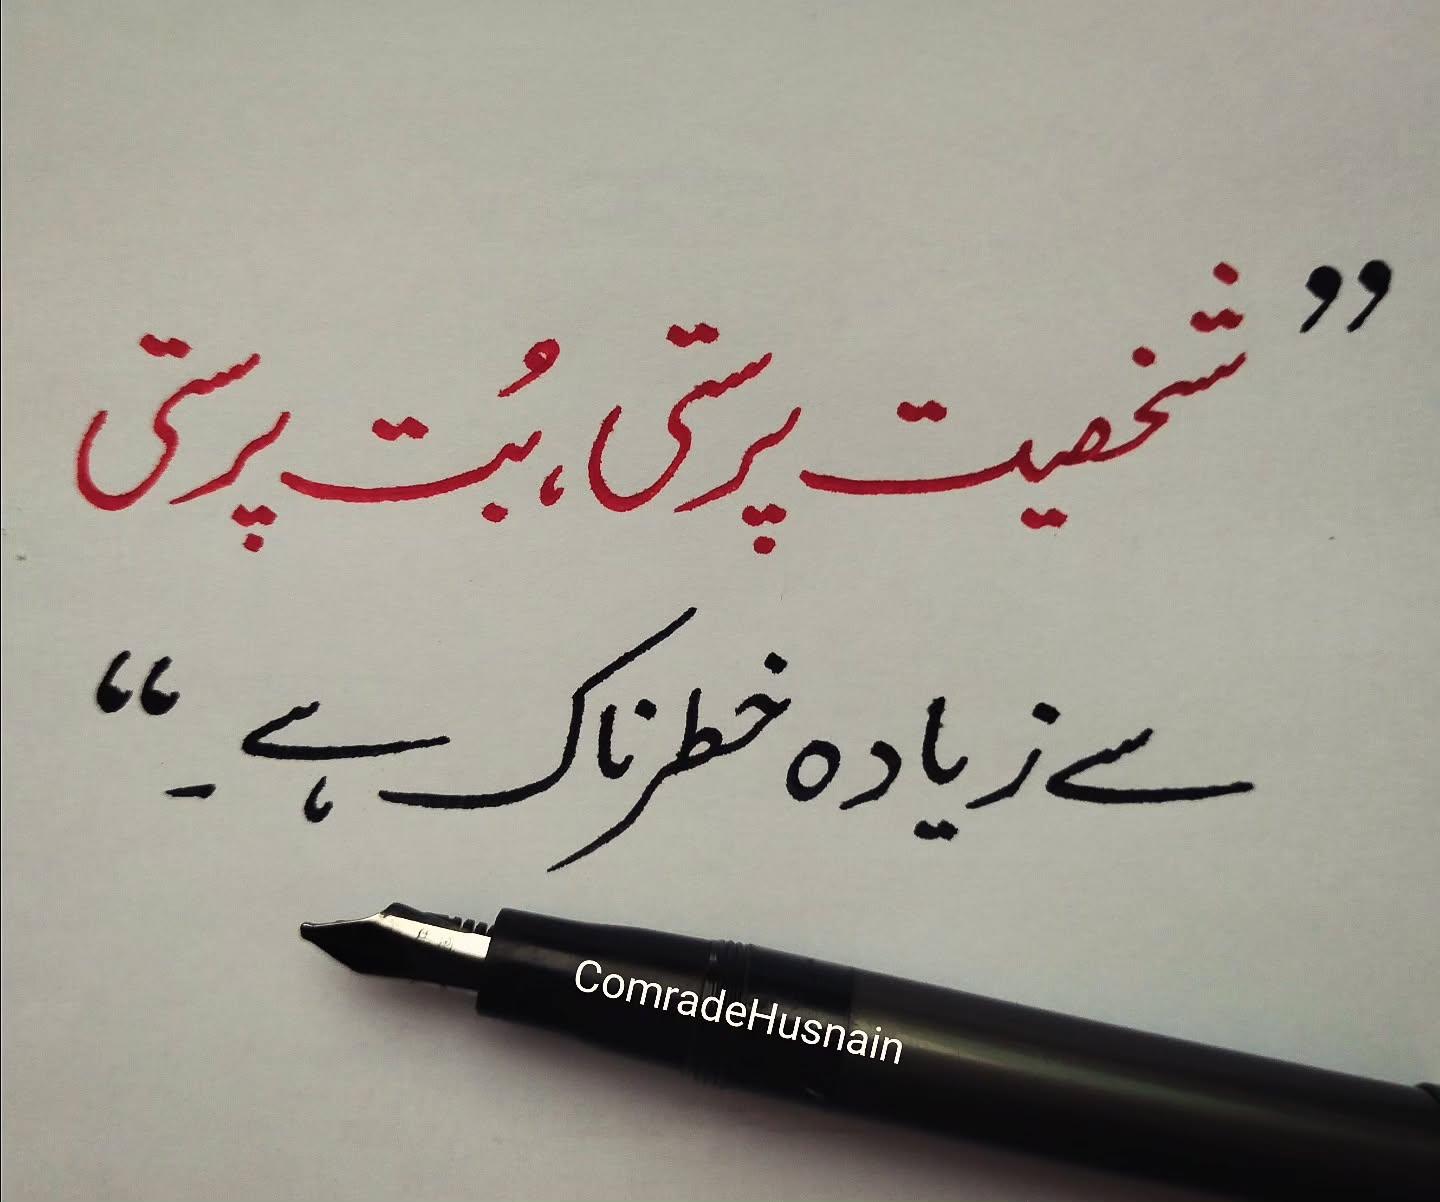 ”شخصیت پرستی، بُت پرستی
سے زیادہ خطرناک ہے۔“
ComradeHusnain